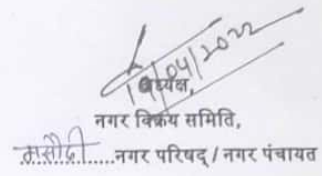 19/04/2022
अध्यक्ष,
नगर विक्रय समिति,
मसौढ़ी.....नगर परिषद् / नगर पंचायत